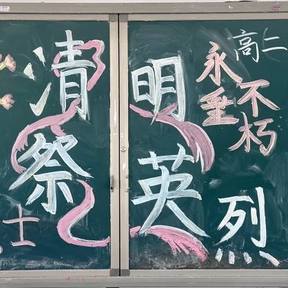 清明
祭英烈
永垂
不朽
高二
士